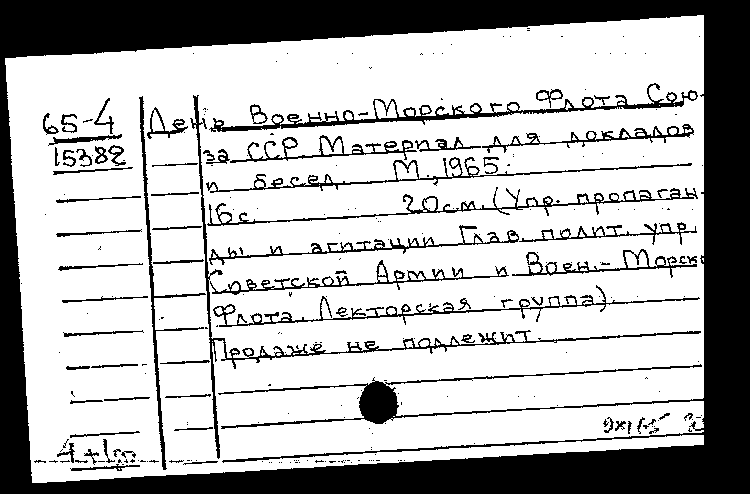 65-4
15382
День Военно-Морского Флота Сою-
за ССР. Материал для докладов
и бесед. М., 1965.
16 с. 20 см. (Упр. пропаган-
ды и агитации Глав. полит. упр.
Советской Армии и Воен.-Морск
Флота. Лекторская группа).
Продаже не подлежит.
4+1